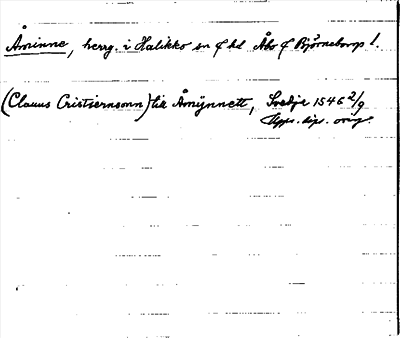 Åminne, herrg. i Halikko sn f hd Åbo f Björneborgs l.
(Clauus Cristiernsonn) til Åmijnnett, Svedje 1546 2/9
dipl. orig.